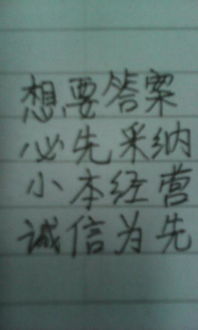 想要答案
必先采纳
小本经营
诚信为先